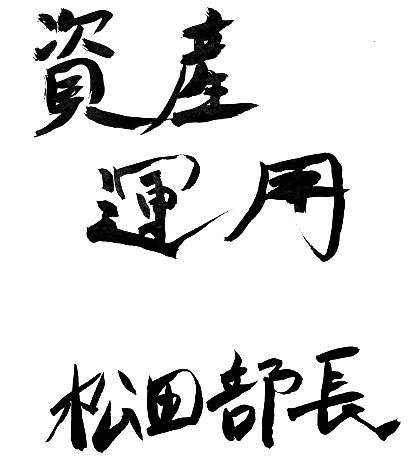 資産
運用
松田部長